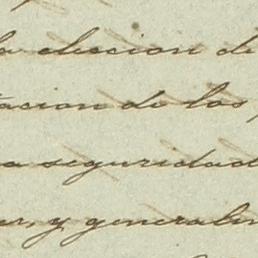 la eleccion de
tacion de los
a seguridad
er, y generalm